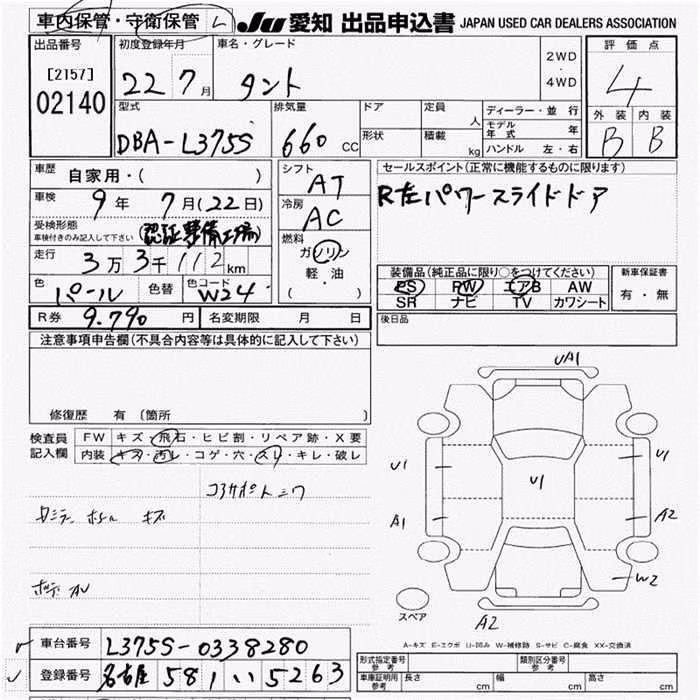 車内保管・守衛保管 JU 愛知 出品申込書 JAPAN USED CAR DEALERS ASSOCIATION
出品番号 初度登録年月 車名・グレード 評価点
[2157] 22 7月 タント 2WD・4WD 4
02140 型式 排気量 ドア 定員 人 ディーラー・並行 外装 内装
DBA-L375S 660 CC 形状 積載 kg モデル年式 年 B B
ハンドル 左・右
車歴 自家用・( ) シフト AT セールスポイント(正常に機能するものに限ります)
車検 9年 7月(22日) 冷房 AC R左パワースライドドア
受検形態 車検付きのみ記入して下さい (認証整備工場) 燃料 ガソリン
走行 3万3千112km 軽油 ( ) 装備品(純正品に限り○をつけてください) 新車保証書
色 パール 色替 色コード W24 PS PW エアB AW 有・無
SR ナビ TV カワシート
R券 9.790円 名変期限 月 日 後日品
注意事項申告欄(不具合内容等は具体的に記入して下さい)
修復歴 有〔箇所 〕
検査員記入欄 FW キズ・飛石・ヒビ割・リペア跡・X要
内装 キズ・汚レ・コゲ・穴・スレ・キレ・破レ
UA1
U1 U1 U1
A1 A2
W2
スペア A2
A-キズ E-エクボ U-凹み W-補修跡 S-サビ C-腐食 XX-交換済
車台番号 L375S-0338280
登録番号 名古屋 581 い 5263
形式指定番号 参考 類別区分番号 参考
車庫証明用 参考 長さ cm 幅 cm 高さ cm